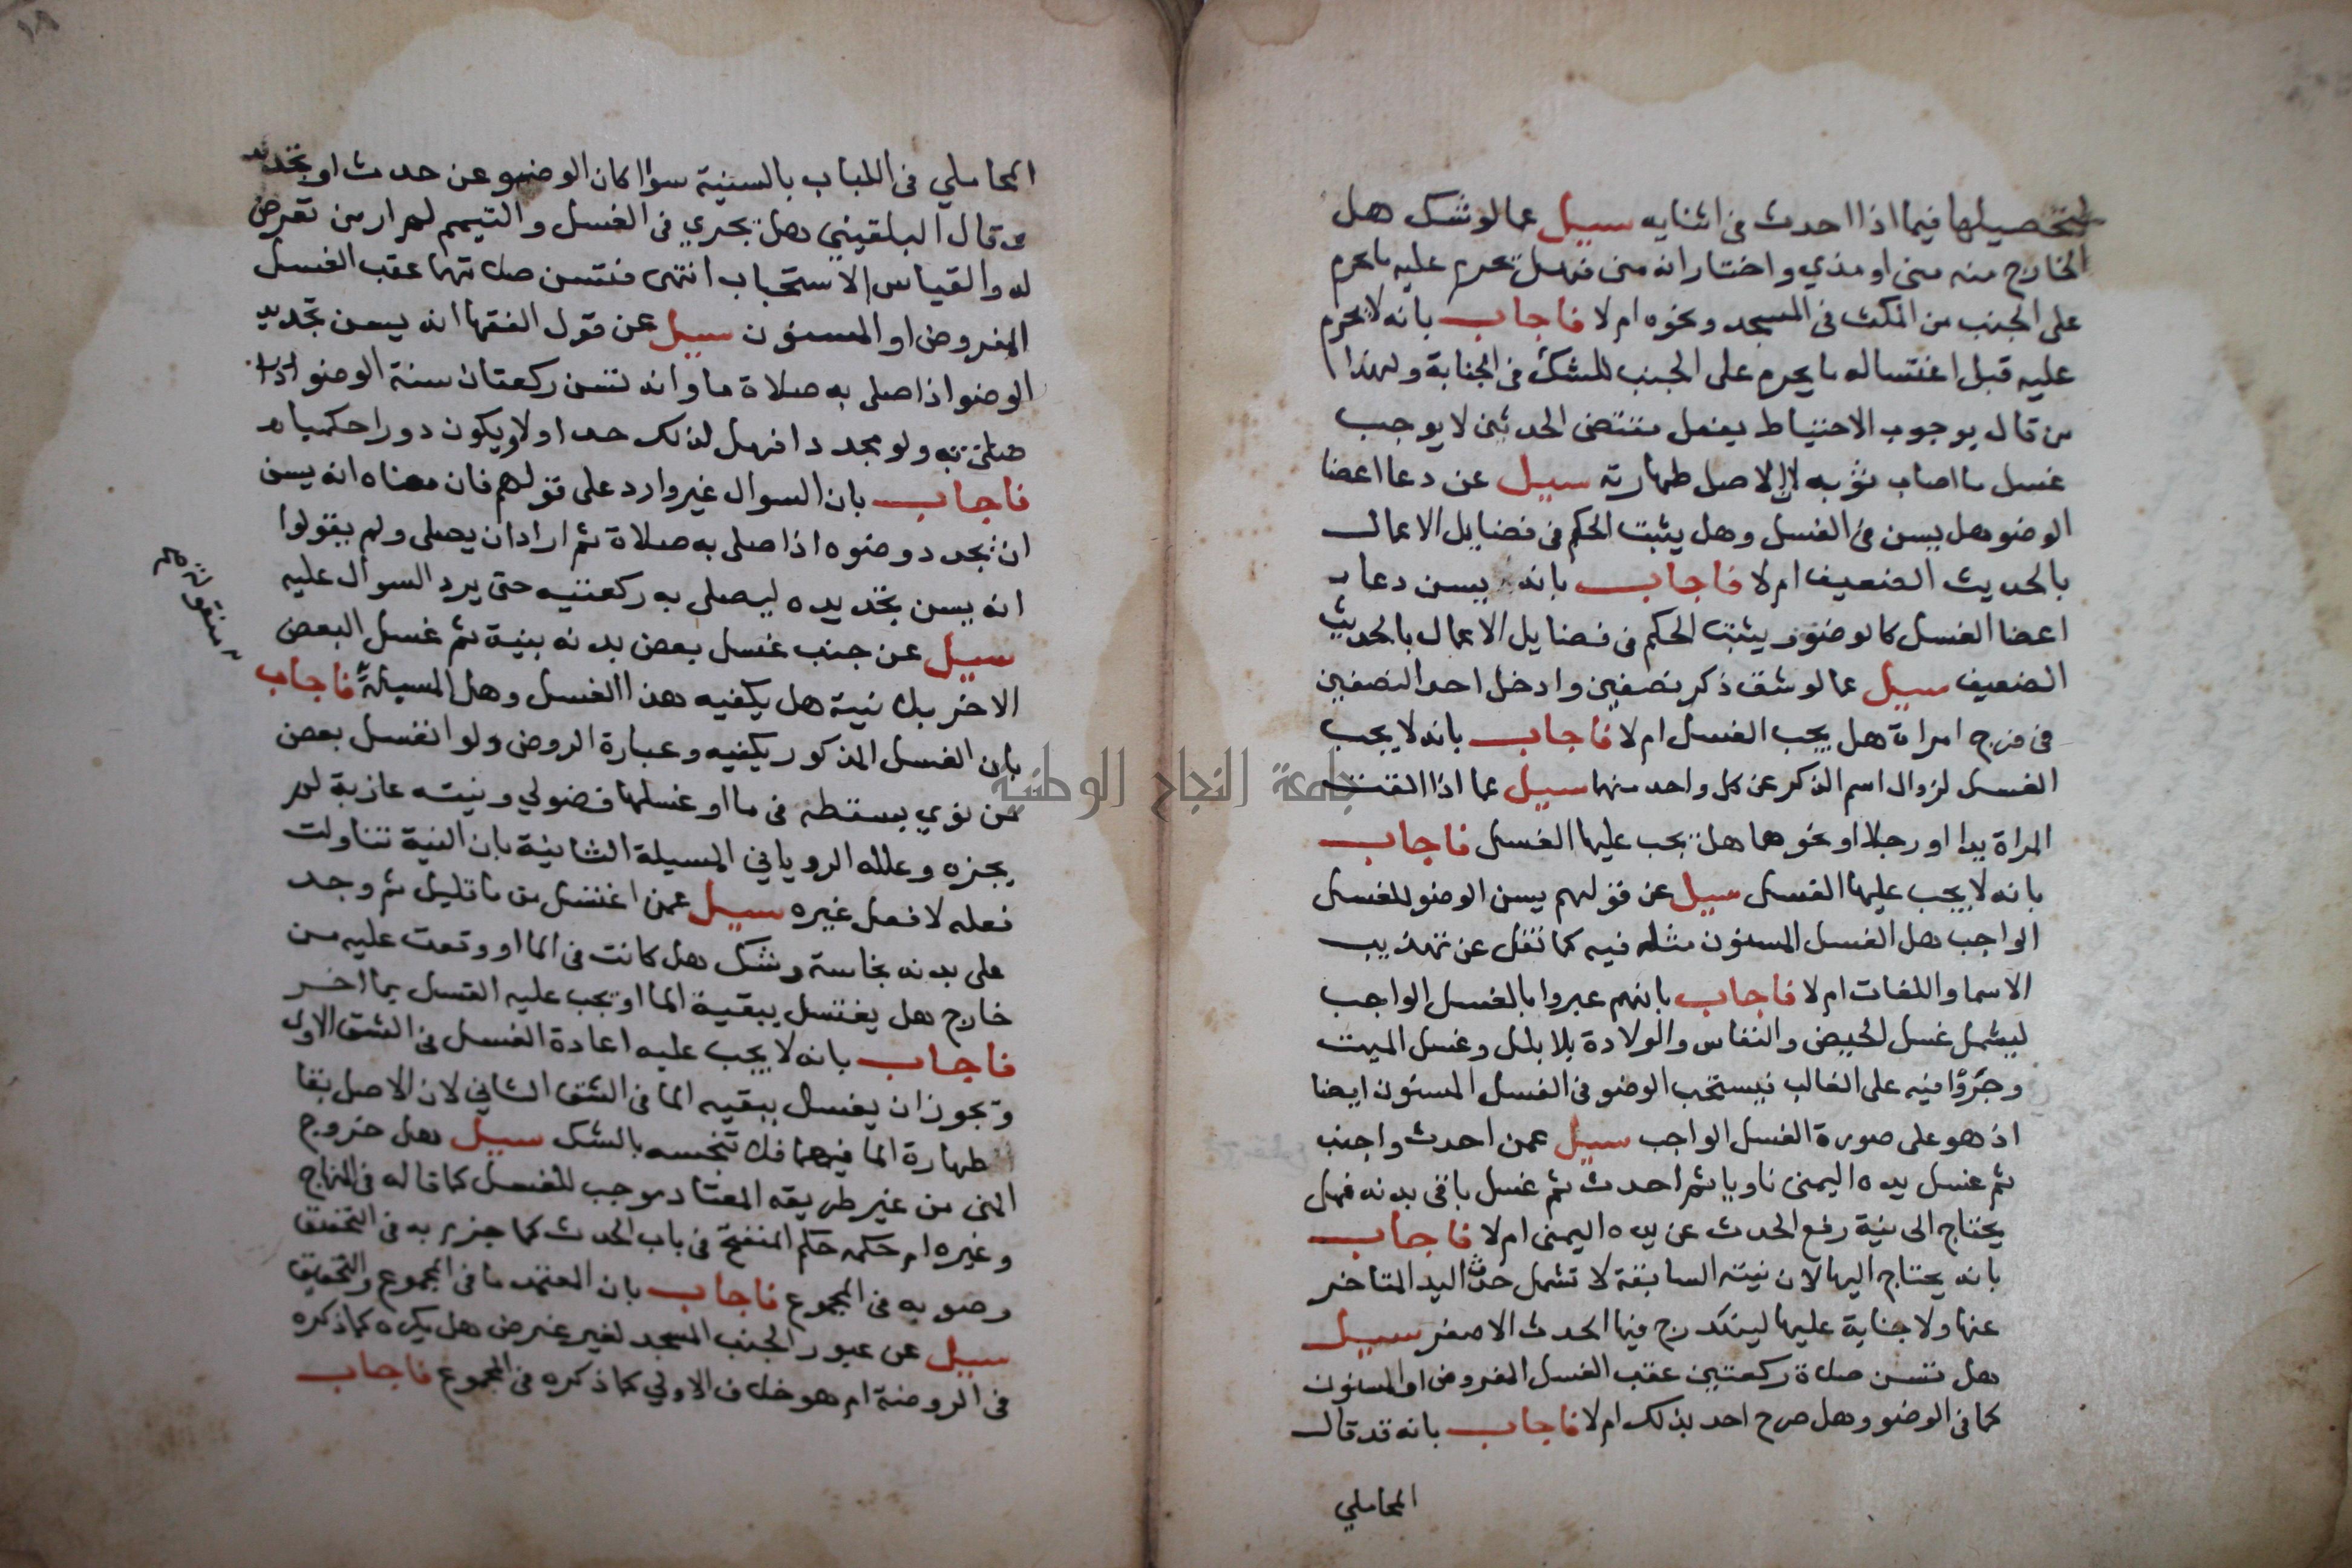 لتحصيلها فيما اذا احدث في اثنايه سيل عما لو شك هل
الخارج منه مني او مذي واختار انه مني فهل تحرم عليه ما يحرم
على الجنب من المكث في المسجد ونحوه ام لا فاجاب بانه لا يحرم
عليه قبل اغتساله ما يحرم على الجنب للشك في الجنابة ولهذا
من قال بوجوب الاحتياط بفعل مقتضى الحدثين لا يوجب
غسل ما اصاب ثوبه لان الاصل طهارته سيل عن دعا اعضا
الوضو هل يسن في الغسل وهل يثبت الحكم في فضايل الاعمال
بالحديث الضعيف ام لا فاجاب بانه يسن دعا
اعضا الغسل كالوضو ويثبت الحكم في فضايل الاعمال بالحديث
الضعيف سيل عما لو شق ذكر نصفين وادخل احد النصفين
في فرج امراة هل يجب الغسل ام لا فاجاب بانه لا يجب
الغسل لزوال اسم الذكر عن كل واحد منهما سيل عما اذا القت
المراة يدا او رجلا او نحوهما هل يجب عليها الغسل فاجاب
بانه لا يجب عليها الغسل سيل عن قولهم يسن الوضو للغسل
الواجب هل الغسل المسنون مثله فيه كما نقل عن تهذيب
الاسما واللغات ام لا فاجاب بانهم عبروا بالغسل الواجب
ليشمل غسل الحيض والنفاس والولادة بلا بلل وغسل الميت
وجروا فيه على الغالب فيستحب الوضو في الغسل المسنون ايضا
اذ هو على صورة الغسل الواجب سيل عمن احدث واجنب
ثم غسل يده اليمنى ناويا ثم احدث ثم غسل باقي بدنه فهل
يحتاج الى نية رفع الحدث عن يده اليمنى ام لا فاجاب
بانه يحتاج اليها لان نيته السابقة لا تشمل حدث اليد المتاخر
عنها ولا جناية عليها ليندرج فيها الحدث الاصغر سيل
هل تسن صلاة ركعتين عقب الغسل المفروض او المسنون
كما في الوضو وهل صرح احد بذلك ام لا فاجاب بانه قد قال
المحاملي
المحاملي في اللباب بالسنية سوا كان الوضو عن حدث او تجديد
وقال البلقيني هل تجري في الغسل والتيمم لم ار من تعرض
له والقياس الاستحباب انتهى فتسن صلاتها عقب الغسل
المفروض او المسنون سيل عن قول الفقها انه يسن تجديد
الوضو اذا صلى به صلاة ما وانه تسن ركعتان سنة الوضو اذا
صلى به ولو مجددا فهل لذلك حد او لا ويكون دورا حكميا
فاجاب بان السوال غير وارد على قولهم فان معناه انه يسن
ان يجدد وضوه اذا صلى به صلاة ثم اراد ان يصلي ولم يقولوا
انه يسن تجديده ليصلي به ركعتيه حتى يرد السوال عليه
سيل عن جنب غسل بعض بدنه بنية ثم غسل البعض
الاخر بلا نية هل يكفيه هذا الغسل وهل المسيلة فاجاب
بان الغسل المذكور يكفيه وعبارة الروض ولو انغسل بعض
من نوى بسقطة في ما او غسلها فضولي ونيته عازبة لم
يجزه وعلله الروياني المسيلة الثانية بان النية تناولت
فعله لا فعل غيره سيل عمن اغتسل من ما قليل ثم وجد
على بدنه نجاسة وشك هل كانت في الما او وقعت عليه من
خارج هل يغتسل ببقية الما او يجب عليه الغسل بما اخر
فاجاب بانه لا يجب عليه اعادة الغسل في الشق الاول
ويجوز ان يغسل ببقيه الما في الشق الثاني لان الاصل بقا
طهارة الما فيهما فلا تنجسه بالشك سيل هل خروج
المني من غير طريقه المعتاد موجب للغسل كما قاله في المنهاج
وغيره ام حكمه حكم المنفتح في باب الحدث كما جزم به في التحقيق
وصوبه في المجموع فاجاب بان المعتمد ما في المجموع والتحقيق
سيل عن عبور الجنب المسجد لغير غرض هل يكره كما ذكره
في الروضة ام هو خلاف الاولى كما ذكره في المجموع فاجاب
جامعة النجاح الوطنية